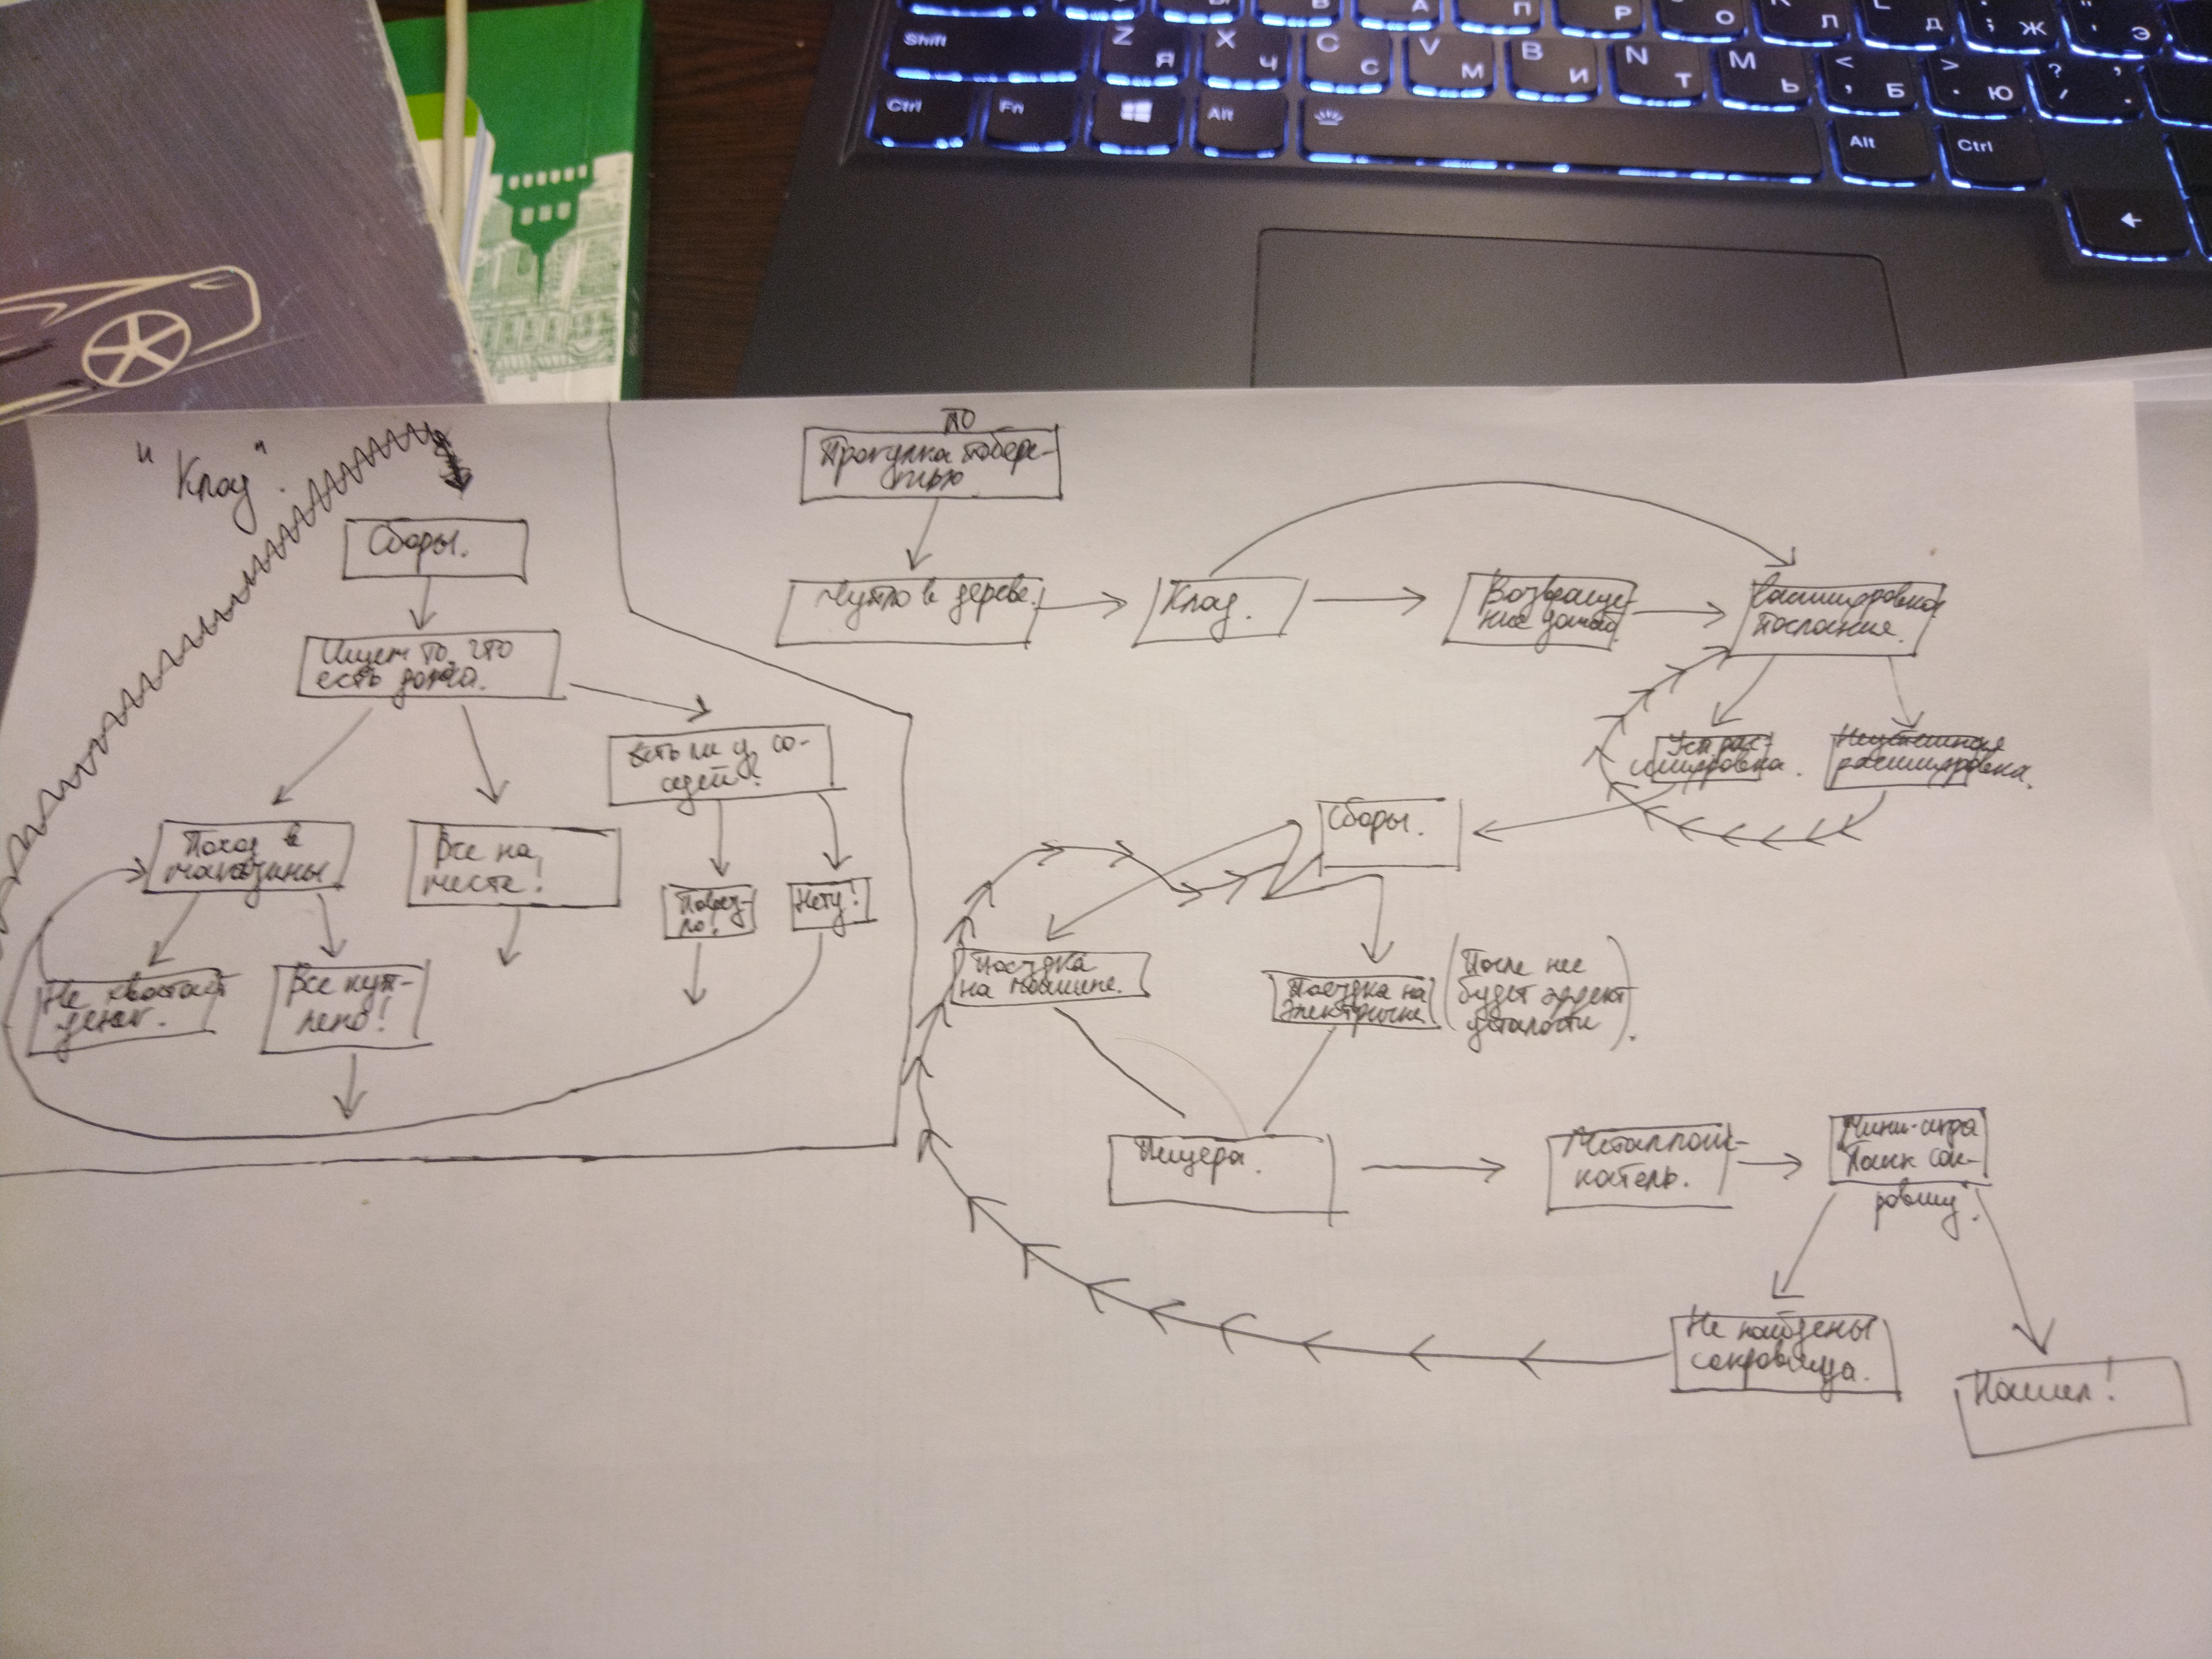 Shift
Z Я
X Ч
C С
V М
B И
N Т
M Ь
< , Б
> . Ю
? / , .
Ctrl
Fn
Alt
Alt
Ctrl
П
Р
О
Л
Д
; Ж
Э
"Клад".
Сборы.
Ищем то, что
есть дома.
Есть ли у со-
седей?
Поход в
магазины
Все на
месте!
Повез-
ло!
Нету!
Не хватает
денег.
Все куп-
лено!
по
Прогулка побере-
жью
Дупло в дереве.
Клад.
Возвраще-
ние домой.
Расшифровка
послания.
Усп. рас-
шифровка.
Неуспешная
расшифровка.
Сборы.
Поездка
на машине.
Поездка на
электричке
(После нее
будет эффект
усталости).
Пещера.
Металлоис-
катель.
Мини-игра
Поиск сок-
ровищ.
Не найдены
сокровища.
Нашел!